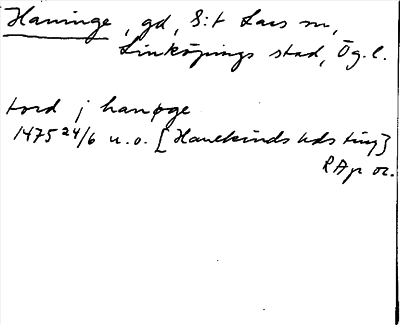 Haninge, gd, S:t Lars sn,
Linköpings stad, Ög.l.
tord j hanøge
1475 24/6 u.o. [Hanekinds hds ting]
RAp or.